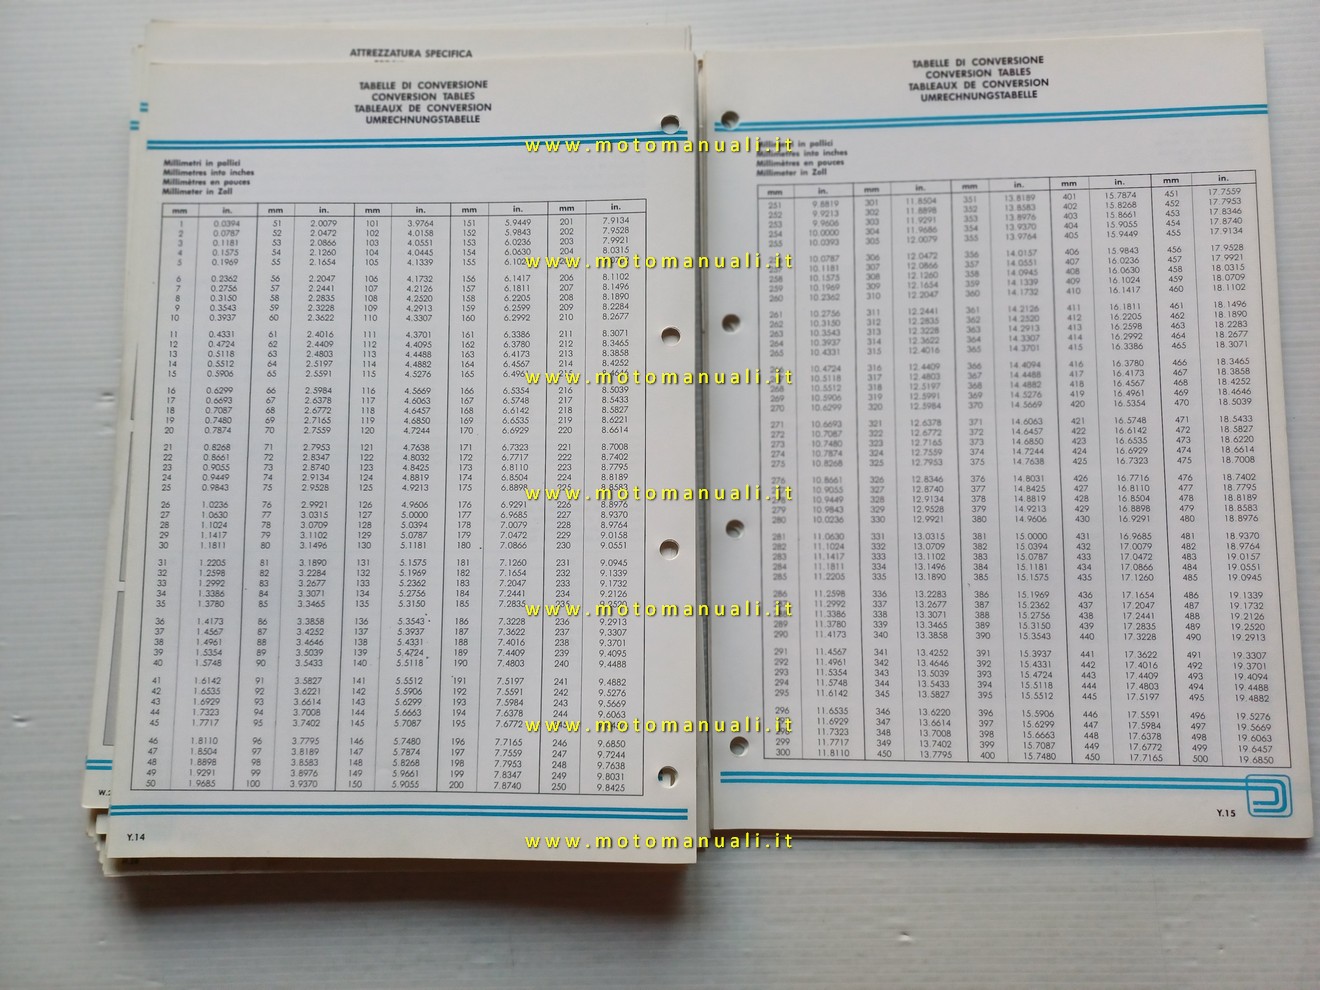 ATTREZZATURA SPECIFICA
TABELLE DI CONVERSIONE
CONVERSION TABLES
TABLEAUX DE CONVERSION
UMRECHNUNGSTABELLE
Millimetri in pollici
Millimetres into inches
Millimètres en pouces
Millimeter in Zoll
mm in. mm in. mm in. mm in. mm in.
1 0.0394 51 2.0079 101 3.9764 151 5.9449 201 7.9134
2 0.0787 52 2.0472 102 4.0158 152 5.9843 202 7.9528
3 0.1181 53 2.0866 103 4.0551 153 6.0236 203 7.9921
4 0.1575 54 2.1260 104 4.0445 154 6.0630 204 8.0315
5 0.1969 55 2.1654 105 4.1339 155
6 0.2362 56 2.2047 106 4.1732 156 6.1417 206 8.1102
7 0.2756 57 2.2441 107 4.2126 157 6.1811 207 8.1496
8 0.3150 58 2.2835 108 4.2520 158 6.2205 208 8.1890
9 0.3543 59 2.3228 109 4.2913 159 6.2599 209 8.2284
10 0.3937 60 2.3622 110 4.3307 160 6.2992 210 8.2677
11 0.4331 61 2.4016 111 4.3701 161 6.3386 211 8.3071
12 0.4724 62 2.4409 112 4.4095 162 6.3780 212 8.3465
13 0.5118 63 2.4803 113 4.4488 163 6.4173 213 8.3858
14 0.5512 64 2.5197 114 4.4882 164 6.4567 214 8.4252
15 0.5906 65 2.5591 115 4.5276 165 6.4961 215
16 0.6299 66 2.5984 116 4.5669 166 6.5354 216 8.5039
17 0.6693 67 2.6378 117 4.6063 167 6.5748 217 8.5433
18 0.7087 68 2.6772 118 4.6457 168 6.6142 218 8.5827
19 0.7480 69 2.7165 119 4.6850 169 6.6535 219 8.6221
20 0.7874 70 2.7559 120 4.7244 170 6.6929 220 8.6614
21 0.8268 71 2.7953 121 4.7638 171 6.7323 221 8.7008
22 0.8661 72 2.8347 122 4.8032 172 6.7717 222 8.7402
23 0.9055 73 2.8740 123 4.8425 173 6.8110 223 8.7795
24 0.9449 74 2.9134 124 4.8819 174 6.8504 224 8.8189
25 0.9843 75 2.9528 125 4.9213 175 6.8898 225 8.8583
26 1.0236 76 2.9921 126 4.9606 176 6.9291 226 8.8976
27 1.0630 77 3.0315 127 5.0000 177 6.9685 227 8.9370
28 1.1024 78 3.0709 128 5.0394 178 7.0079 228 8.9764
29 1.1417 79 3.1102 129 5.0787 179 7.0472 229 9.0158
30 1.1811 80 3.1496 130 5.1181 180 7.0866 230 9.0551
31 1.2205 81 3.1890 131 5.1575 181 7.1260 231 9.0945
32 1.2598 82 3.2284 132 5.1969 182 7.1654 232 9.1339
33 1.2992 83 3.2677 133 5.2362 183 7.2047 233 9.1732
34 1.3386 84 3.3071 134 5.2756 184 7.2441 234 9.2126
35 1.3780 85 3.3465 135 5.3150 185 7.2835
36 1.4173 86 3.3858 136 5.3543 186 7.3228 236 9.2913
37 1.4567 87 3.4252 137 5.3937 187 7.3622 237 9.3307
38 1.4961 88 3.4646 138 5.4331 188 7.4016 238 9.3701
39 1.5354 89 3.5039 139 5.4724 189 7.4409 239 9.4095
40 1.5748 90 3.5433 140 5.5118 190 7.4803 240 9.4488
41 1.6142 91 3.5827 141 5.5512 191 7.5197 241 9.4882
42 1.6535 92 3.6221 142 5.5906 192 7.5591 242 9.5276
43 1.6929 93 3.6614 143 5.6299 193 7.5984 243 9.5669
44 1.7323 94 3.7008 144 5.6663 194 7.6378 244 9.6063
45 1.7717 95 3.7402 145 5.7087 195 7.6772
46 1.8110 96 3.7795 146 5.7480 196 7.7165 246 9.6850
47 1.8504 97 3.8189 147 5.7874 197 7.7559 247 9.7244
48 1.8898 98 3.8583 148 5.8268 198 7.7953 248 9.7638
49 1.9291 99 3.8976 149 5.9661 199 7.8347 249 9.8031
50 1.9685 100 3.9370 150 5.9055 200 7.8740 250 9.8425
Y.14
TABELLE DI CONVERSIONE
CONVERSION TABLES
TABLEAUX DE CONVERSION
UMRECHNUNGSTABELLE
in pollici
Millimetres into inches
Millimètres en pouces
Millimeter in Zoll
mm in. mm in. mm in. mm in. mm in.
251 9.8819 301 11.8504 351 13.8189 401 15.7874 451 17.7559
252 9.9213 302 11.8898 352 13.8583 402 15.8268 452 17.7953
253 9.9606 303 11.9291 353 13.8976 403 15.8661 453 17.8346
254 10.0000 304 11.9686 354 13.9370 404 15.9055 454 17.8740
255 10.0393 305 12.0079 355 13.9764 405 15.9449 455 17.9134
10.0787 306 12.0472 356 14.0157 406 15.9843 456 17.9528
257 10.1181 307 12.0866 357 14.0551 407 16.0236 457 17.9921
258 10.1575 308 12.1260 358 14.0945 408 16.0630 458 18.0315
259 10.1969 309 12.1654 359 14.1339 409 16.1024 459 18.0709
260 10.2362 310 12.2047 360 14.1732 410 16.1417 460 18.1102
261 10.2756 311 12.2441 361 14.2126 411 16.1811 461 18.1496
262 10.3150 312 12.2835 362 14.2520 412 16.2205 462 18.1890
263 10.3543 313 12.3228 363 14.2913 413 16.2598 463 18.2283
264 10.3937 314 12.3622 364 14.3307 414 16.2992 464 18.2677
265 10.4331 315 12.4016 365 14.3701 415 16.3386 465 18.3071
10.4724 316 12.4409 366 14.4094 416 16.3780 466 18.3465
10.5118 317 12.4803 367 14.4488 417 16.4173 467 18.3858
268 10.5512 318 12.5197 368 14.4882 418 16.4567 468 18.4252
269 10.5906 319 12.5991 369 14.5276 419 16.4961 469 18.4646
270 10.6299 320 12.5984 370 14.5669 420 16.5354 470 18.5039
271 10.6693 321 12.6378 371 14.6063 421 16.5748 471 18.5433
272 10.7087 322 12.6772 372 14.6457 422 16.6142 472 18.5827
273 10.7480 323 12.7165 373 14.6850 423 16.6535 473 18.6220
274 10.7874 324 12.7559 374 14.7244 424 16.6929 474 18.6614
275 10.8268 325 12.7953 375 14.7638 425 16.7323 475 18.7008
276 10.8661 326 12.8346 376 14.8031 426 16.7716 476 18.7402
10.9055 327 12.8740 377 14.8425 427 16.8110 477 18.7795
10.9449 328 12.9134 378 14.8819 428 16.8504 478 18.8189
279 10.9843 329 12.9528 379 14.9213 429 16.8898 479 18.8583
280 10.0236 330 12.9921 380 14.9606 430 16.9291 480 18.8976
281 11.0630 331 13.0315 381 15.0000 431 16.9685 481 18.9370
282 11.1024 332 13.0709 382 15.0394 432 17.0079 482 18.9764
283 11.1417 333 13.1102 383 15.0787 433 17.0472 483 19.0157
284 11.1811 334 13.1496 384 15.1181 434 17.0866 484 19.0551
285 11.2205 335 13.1890 385 15.1575 435 17.1260 485 19.0945
286 11.2598 336 13.2283 386 15.1969 436 17.1654 486 19.1339
11.2992 337 13.2677 387 15.2362 437 17.2047 487 19.1732
11.3386 338 13.3071 388 15.2756 438 17.2441 488 19.2126
289 11.3780 339 13.3465 389 15.3150 439 17.2835 489 19.2520
290 11.4173 340 13.3858 390 15.3543 440 17.3228 490 19.2913
291 11.4567 341 13.4252 391 15.3937 441 17.3622 491 19.3307
292 11.4961 342 13.4646 392 15.4331 442 17.4016 492 19.3701
293 11.5354 343 13.5039 393 15.4724 443 17.4409 493 19.4094
294 11.5748 344 13.5433 394 15.5118 444 17.4803 494 19.4488
295 11.6142 345 13.5827 395 15.5512 445 17.5197 495 19.4882
296 11.6535 346 13.6220 396 15.5906 446 17.5591 496 19.5276
11.6929 347 13.6614 397 15.6299 447 17.5984 497 19.5669
11.7323 348 13.7008 398 15.6663 448 17.6378 498 19.6063
299 11.7717 349 13.7402 399 15.7087 449 17.6772 499 19.6457
300 11.8110 450 13.7795 400 15.7480 450 17.7165 500 19.6850
Y.15
www.motomanuali.it
www.motomanuali.it
www.motomanuali.it
www.motomanuali.it
www.motomanuali.it
www.motomanuali.it
www.motomanuali.it